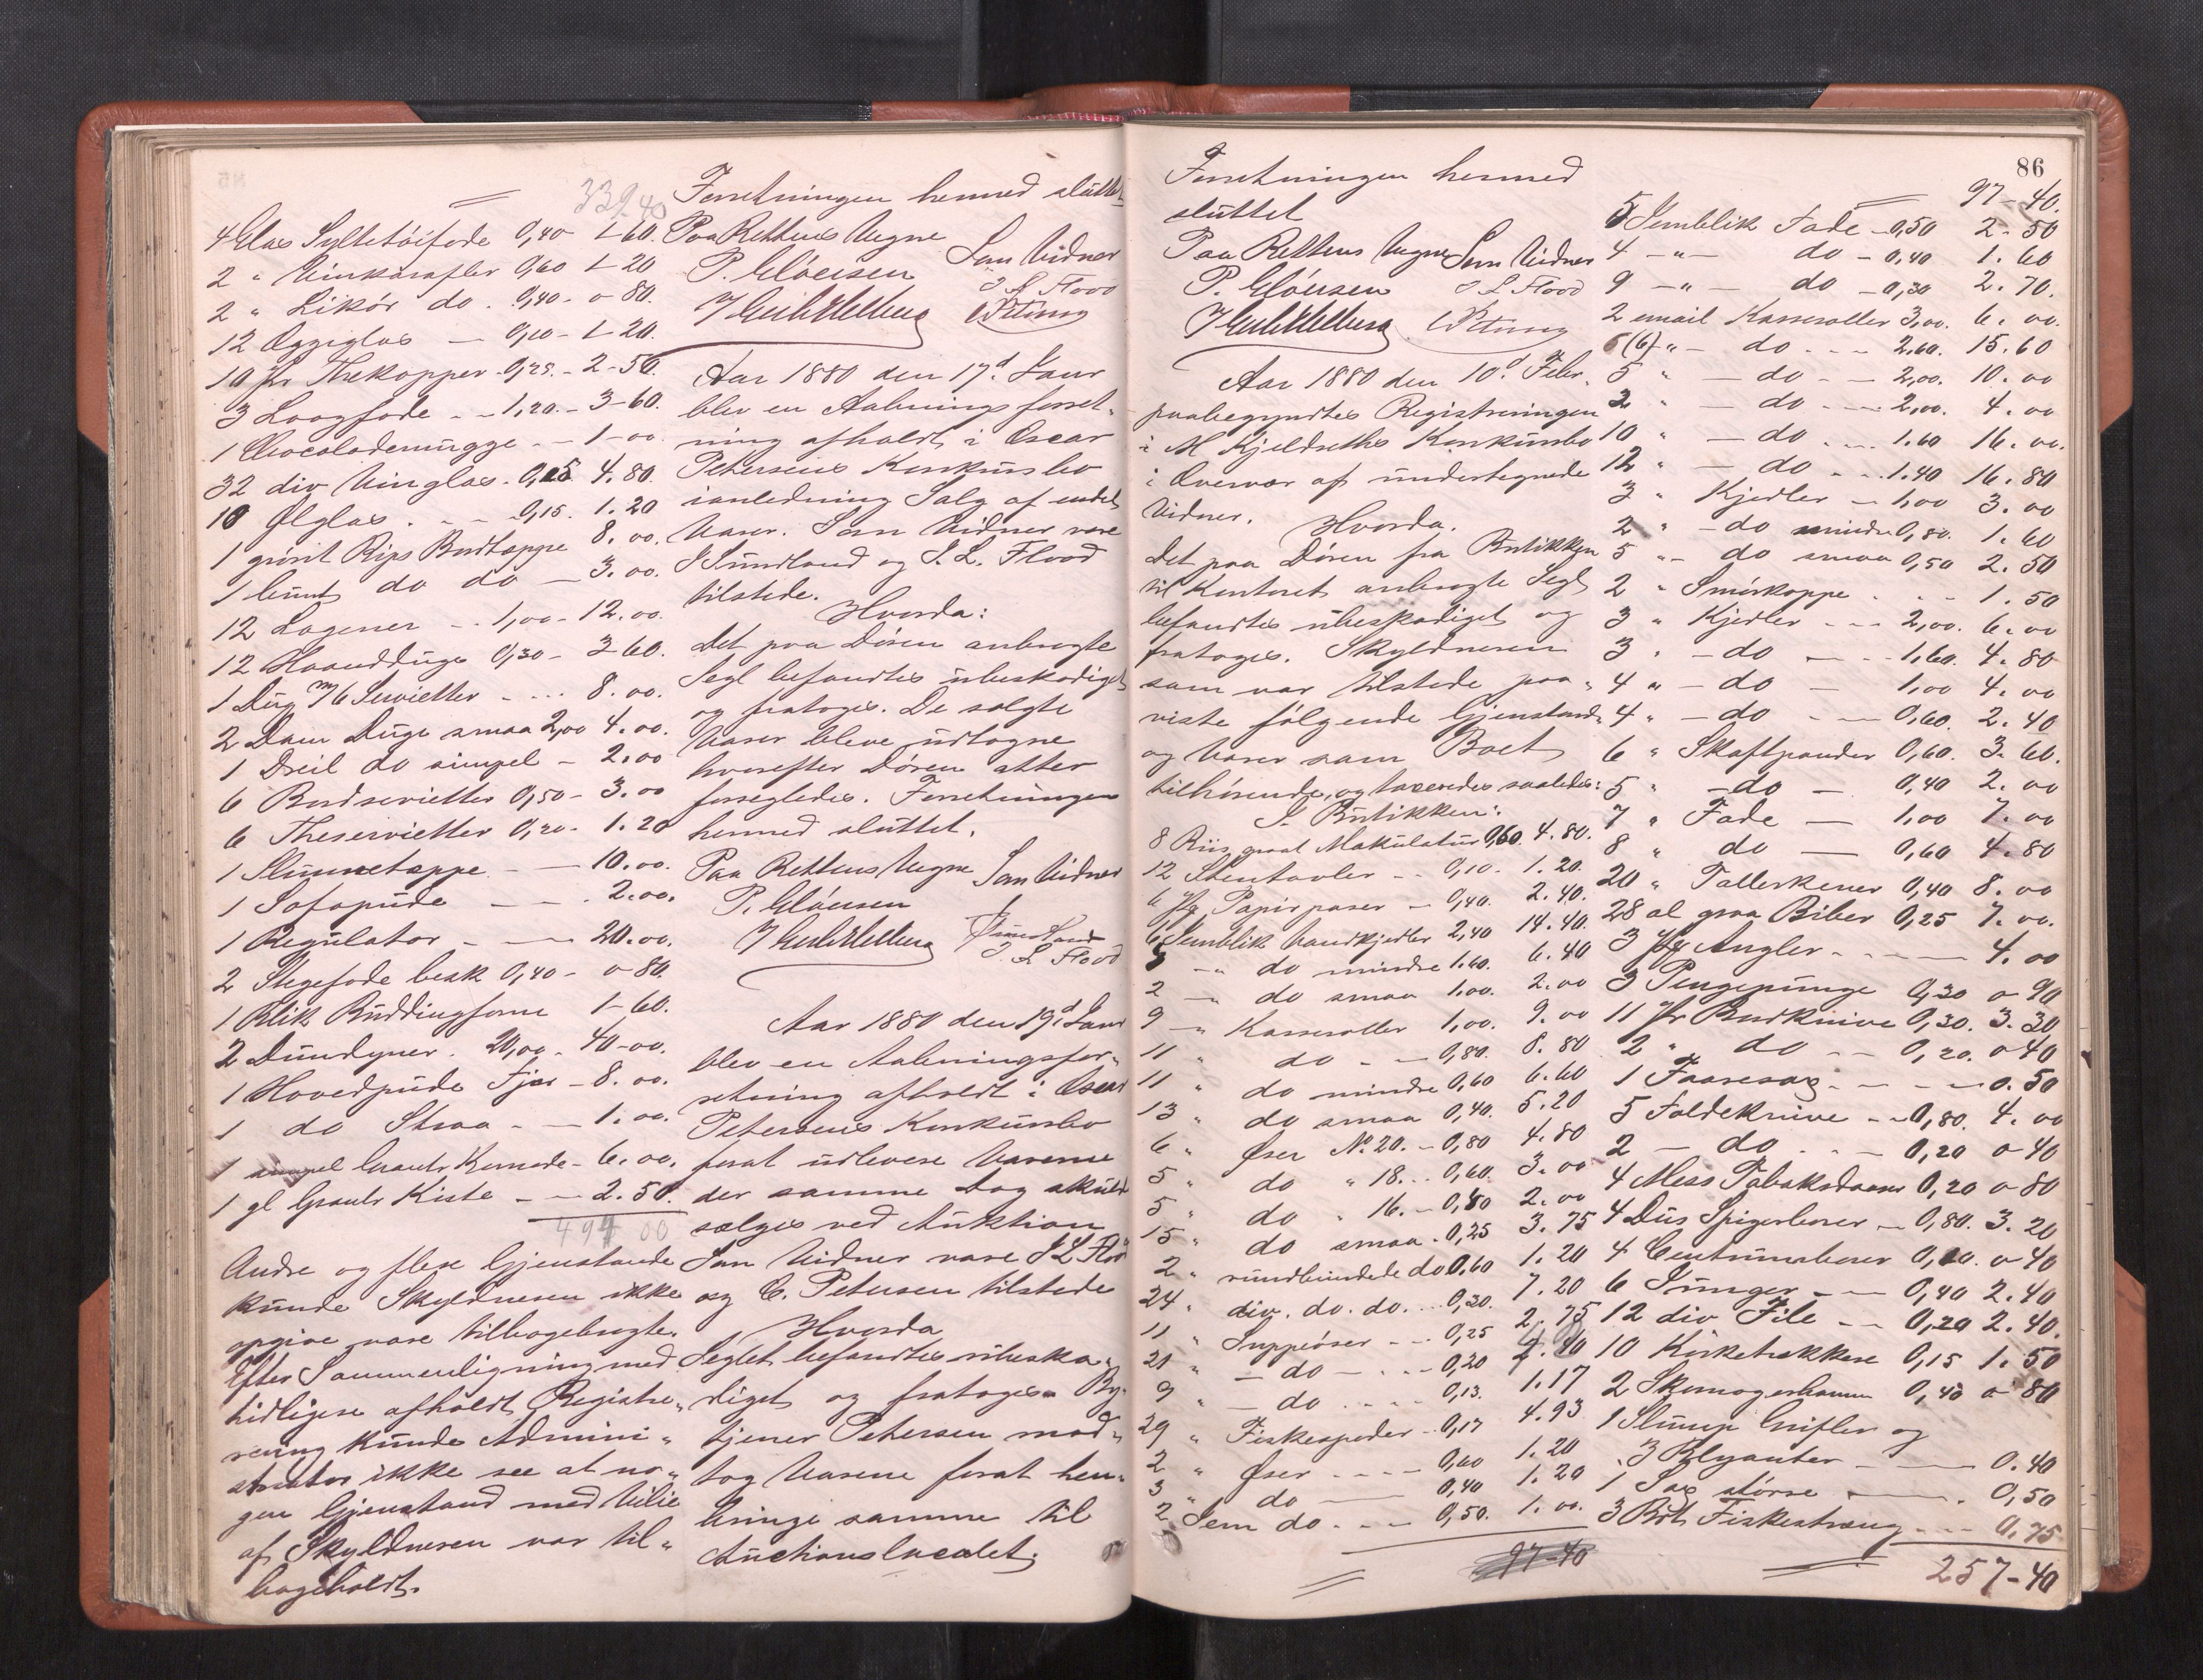 339.40
4 Glas Syltetöifade 0,40 1-60.
2 " Vinkarafler 0,60 1-20
2 " Likör do. 0,40 - 0 80.
12 Æggiglas — 0,10 - 1-20.
10 pr Thekopper - 0,25. - 2-50.
3 Laagfade - - 1,20. - 3-60.
1 Chocolademugge - - 1-00.
32 div Vinglas. 0,15 4.80.
10 Ølglas. - - 0,15. 1.20
1 grönt Rips Bordtæppe 8.00.
1 bunt do do — 3.00.
12 Lagener - - 1,00 - 12.00.
12 Haandduge 0,30 - 3-60.
1 Dug m/6 Servietter - - - 8.00.
2 Dam Duge smaa 2,00 4.00.
1 Dreil do simpel - 2.00
6 Bordservietter 0,50 - 3.00
6 Theservietter 0,20 - 1.20
1 Slummetæppe - — 10.00.
1 Sofapude — - 2.00.
1 Regulator - — 20.00.
2 Stegefade besk 0,40 - 0 80.
1 Blik Buddingform 1-60.
2 Dundyner. 20,00. 40-00.
1 Hovedpude Fjær - 8.00.
1 do Straa - — 1.00.
1 simpel Grants Komode - 6.00.
1 gl Grants Kiste - — 2.50.
494 00
Andre og flere Gjenstande
kunde Skyldneren ikke
opgive vare tilbagebragte.
Efter Sammenligning med
tidligere afholdt Registre-
rering kunde Admini-
strator ikke see at no-
gen Gjenstand med Vilie
af Skyldneren var til-
bageholdt.
Forretningen hermed sluttet
Paa Rettens Vegne Som Vidner
P. Clöusen J L Flood
Aar 1880 den 17d Janr
blev en Aabningsforret-
ning afholdt i Oscar
Petersens Konkursbo
ianledning Salg af endel
Varer. Som Vidner vare
J Sundland og J. L. Flood
tilstede.
Hvorda:
Det paa Dören anbragte
Segl befandtes ubeskadiget
og fratoges. De solgte
Varer bleve udtagne
hvorefter Dören atter
forsegledes. Forretningen
hermed sluttet.
Paa Rettens Vegne Som Vidner
P. Clöusen J Sundland
J. L Flood
Aar 1880 den 19d Janr
blev en Aabningsfor-
retning afholdt i Oscar
Petersens Konkursbo
forat udlevere Varerne
der samme Dag skulde
sælges ved Auktion
Som Vidner vare J L Flood
og C. Petersen tilstede
Hvorda
Seglet befandtes ubeska-
diget og fratoges. By-
tjener Petersen mod-
tog Varerne forat hen-
bringe samme til
Auctionslocalet.
86
Forretningen hermed
sluttet
Paa Rettens Vegne Som Vidner
P. Clöusen J L Flood
Aar 1880 den 10d Febr.
paabegyndtes Registreringen
i M Kjeldseths Konkursbo
i Overvær af undertegnede
Vidner.
Hvorda.
Det paa Dören fra Butikken
til Kontoret anbragte Segl
befandtes ubeskadiget og
fratoges. Skyldneren
som var tilstede paa-
viste fölgende Gjenstande
og Varer som Boet
tilhörende, og taxeredes saaledes:
I Butikken:
8 Riis graat Makulatur 0,60. 4.80.
12 Stentavler - - 0,10. 1.20.
6 Pk Papirposer - 0,40. 2.40.
6 Jernblik Vandkjedler 2,40 14.40.
4 - " do mindre 1.60. 6.40
2 - " do smaa 1.00. 2.00
9 - " Kasseroller 1,00. 9.00
11 " do - - 0,80. 8.80
11 " do mindre 0,60 6.60
13 " do smaa 0,40. 5.20
6 " Øser No 20. - 0,80 4.80
5 " do " 18. . . 0,60. 3.00
5 " do " 16. - 0,40 2.00
15 " do smaa. 0,25 3.75
2 " rundbundede do 0.60 1.20
24 " div. do. do. . . 0,30. 7.20
11 " Suppeöser - . . 0,25 2.75
21 " - do - . . - 0,20 4.20
9 " - do . . . . 0,13. 1.17
29 " Fiskespader - 0,17 4.93
2 " Øser - - - - 0,60 1.20
3 " do — 0,40 1.20
2 Jern do. - - - 0,50. 1.00.
97-40
97-40.
5 Jernblik Fade - 0,50 2.50
4 - " - do - 0,40 1.60
9 - " - do - 0,30 2.70.
2 email Kasseroller 3,00. 6.00.
6 (6) " - do . . - 2.60. 15.60
5 " - do - - 2,00. 10.00
2 " - do - - 2,00. 4.00
10 " - do . . . 1.60 16.00.
12 " - do . . . 1.40 16.80
3 " Kjedler - 1,00 3.00
2 " - do mindre 0,80. 1.60
5 " - do smaa 0,50 2.50
2 " Smörkoppe . . - 1.50
3 " Kjedler - - - 2,00. 6.00
3 " - do - - - 1.60. 4.80
4 " - do - 1,00 4.00
4 " - do - - 0,60. 2.40
6 " Skaftpander 0,60. 3.60.
5 " - do - 0,40 2.00
7 " Fade — 1,00 7.00
8 " do — 0,60 4.80
20 " Tallerkener 0,40 8.00
28 al graa Biber 0,25 7.00.
3 Pk Angler - - - — 4.00
3 Pengepunge 0,30 0 90
11 pr Bordknive 0,30. 3.30
2 " do - - 0,20. 0 40
1 Faaresax - - - 0.50
5 Foldeknive - - 0,80. 4.00
2 - do . . - 0,20 0 40
4 Mess Tobaksdaaser 0,20 0 80
4 Dus Spigerborer - 0,80. 3.20
4 Centrumsborer 0,10. 0 40
6 Tænger - - 0,40 2.40
12 div File - - 0,20 2.40.
10 Korketrekkere 0,15 1.50
2 Skomagerhamre 0,40 0 80
1 Slump Grifler og
3 Blyanter — 0.40
1 Sax större — . 0,50
3 Bdt Fiskestræng - - - 0.75
257-40